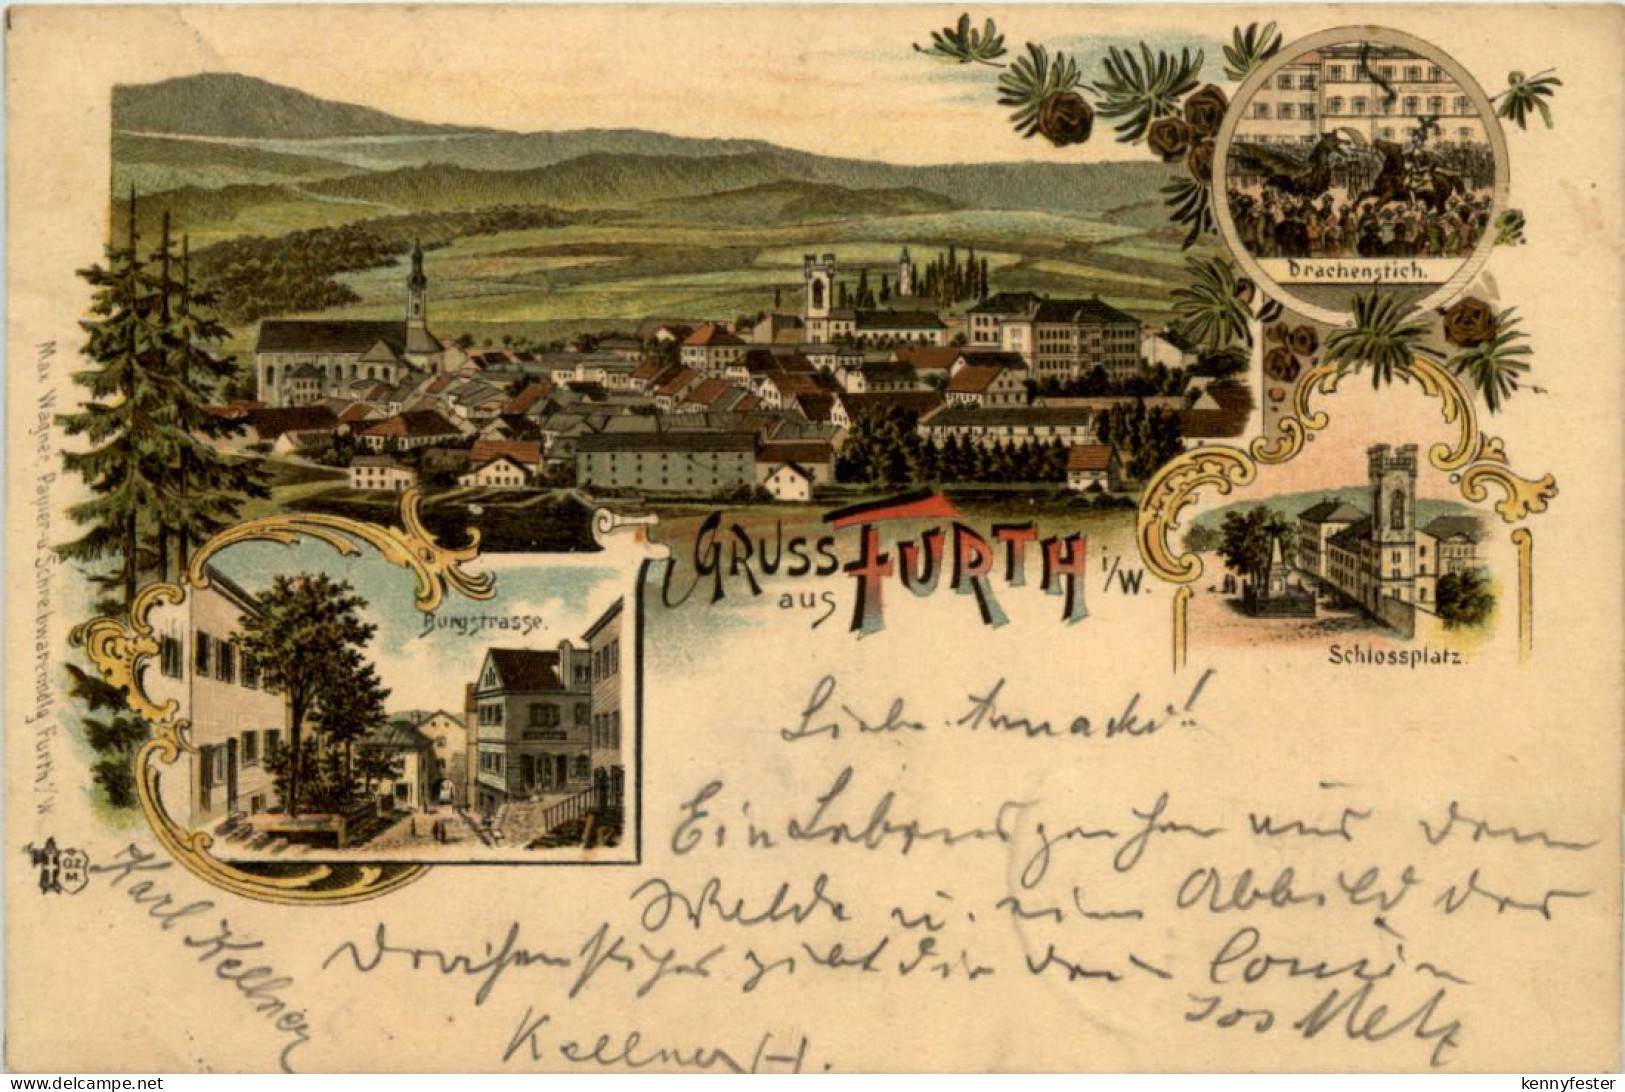 Drachenstich.
GRUSS aus FURTH i/W.
Burgstrasse.
Schlossplatz.
Max Wagner, Papier-u Schreibwarenhdlg Furth i/W
O.Z. M.
Liebe
Ein Lebenszeichen aus dem
Walde u. ein Abbild des
Drachenstiches gibt dir dein Cousin
Jos Metz
Kellner H.
Karl Kellner
delcampe.net
kennyfester